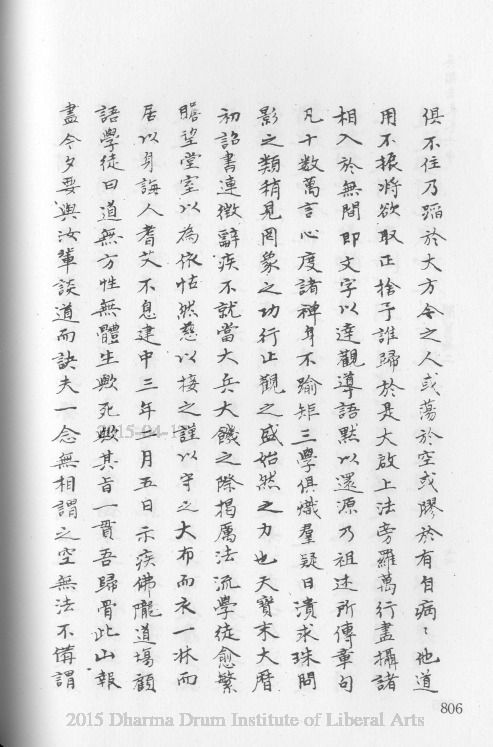 俱不住乃蹈於大方今之人或蕩於空或膠於有自病〻他道
用不振將欲取正捨予誰歸於是大啟上法旁羅萬行盡攝諸
相入於無間即文字以達觀導語默以還源乃祖述所傳章句
凡十數萬言心度諸禪身不踰矩三學俱熾羣疑日潰求珠問
影之類稍見罔象之功行止觀之盛始然之力也天寶末大曆
初詔書連徵辭疾不就當大兵大饑之際揭厲法流學徒愈繁
瞻望堂室以為依怙然慈以接之謹以守之大布而衣一牀而
居以身誨人耆艾不息建中三年二月五日示疾佛隴道場顧
語學徒曰道無方性無體生歟死歟其旨一貫吾歸骨此山報
盡今夕要與汝輩談道而訣夫一念無相謂之空無法不備謂
806
2015-04-1
2015 Dharma Drum Institute of Liberal Arts